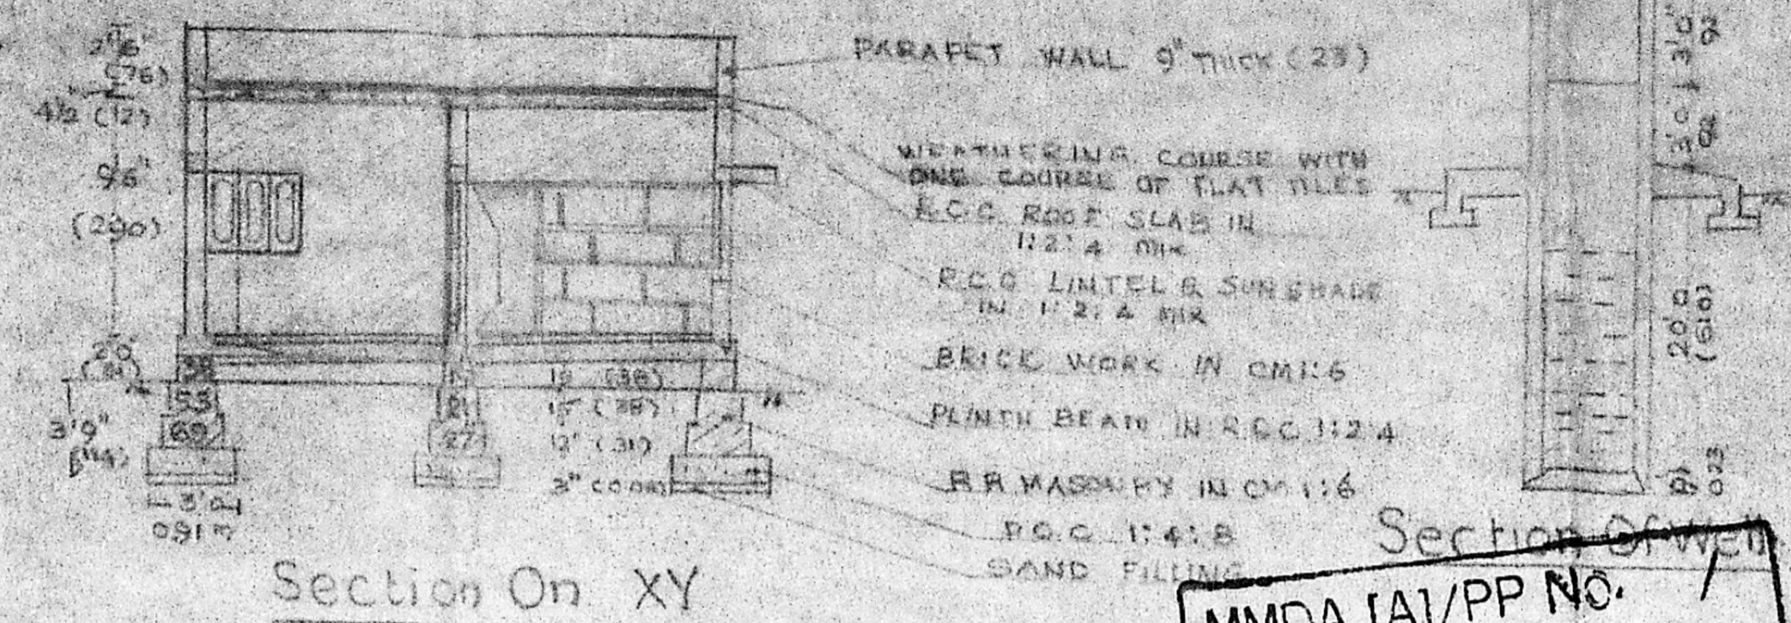 2'6"
(76)
4½ (12)
9'6"
(290)
2'0"
3'9"
3'0"
0.91 m
38
53
69
21
27
15 (38)
15" (38)
12" (31)
3"
PARAPET WALL 9" THICK (23)
WEATHERING COURSE WITH
ONE COURSE OF FLAT TILES
R.C.C. ROOF SLAB IN
1:2:4 MIX
R.C.C LINTEL & SUNSHADE
IN 1:2:4 MIX
BRICK WORK IN CM 1:6
PLINTH BEAM IN R.C.C 1:2:4
R.R MASONRY IN CM 1:6
P.C.C 1:4:8
SAND FILLING
Section On XY
3'0"
3'0
20'0
(610)
9"
0.23
Section Of Well
MMDA [A]/PP No. /